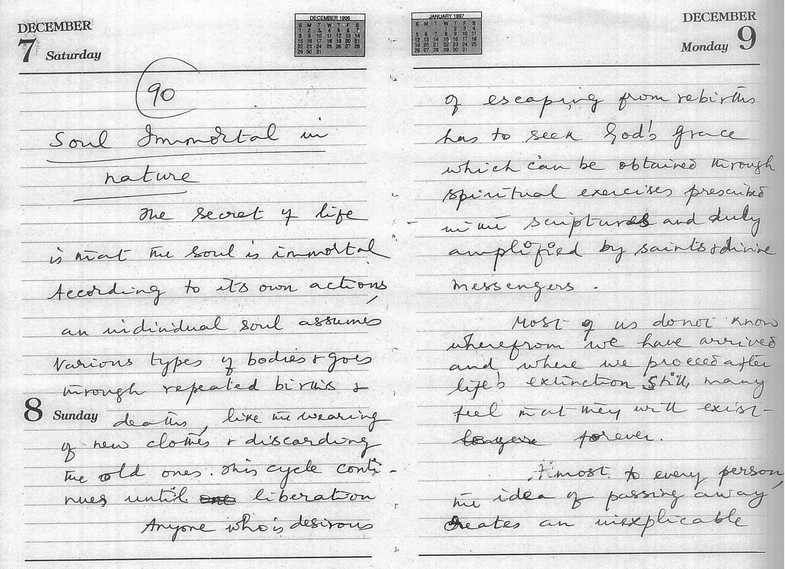 DECEMBER
7 Saturday
DECEMBER 1996
90
Soul Immortal in
nature
The secret of life
is that the soul is immortal
According to its own actions,
an individual soul assumes
various types of bodies & goes
through repeated births &
8 Sunday
deaths, like the wearing
of new clothes & discarding
the old ones. This cycle conti-
nues until liberation
Anyone who is desirous
JANUARY 1997
DECEMBER
Monday 9
of escaping from rebirths
has to seek God's grace
which can be obtained through
spiritual exercises prescribed
in the scriptures and duly
amplified by saints & divine
messengers.
Most of us do not know
wherefrom we have arrived
and where we proceed after
life's extinction Still, many
feel that they will exist
forever.
Almost to every person,
the idea of passing away,
creates an inexplicable